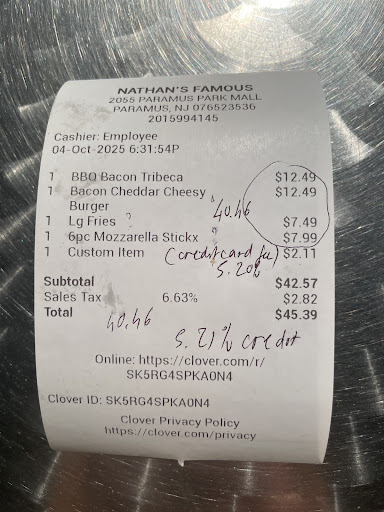 NATHAN'S FAMOUS
2055 PARAMUS PARK MALL
PARAMUS, NJ 076523536
2015994145
Cashier: Employee
04-Oct-2025 6:31:54P
1 BBQ Bacon Tribeca $12.49
1 Bacon Cheddar Cheesy $12.49
Burger 40.46
1 Lg Fries ? $7.49
1 6pc Mozzarella Stickx $7.99
1 Custom Item (credit card fee) $2.11
5.20%
Subtotal $42.57
Sales Tax 6.63% $2.82
Total $45.39
40.46
5.21% credit
Online: https://clover.com/r/
SK5RG4SPKA0N4
Clover ID: SK5RG4SPKA0N4
Clover Privacy Policy
https://clover.com/privacy